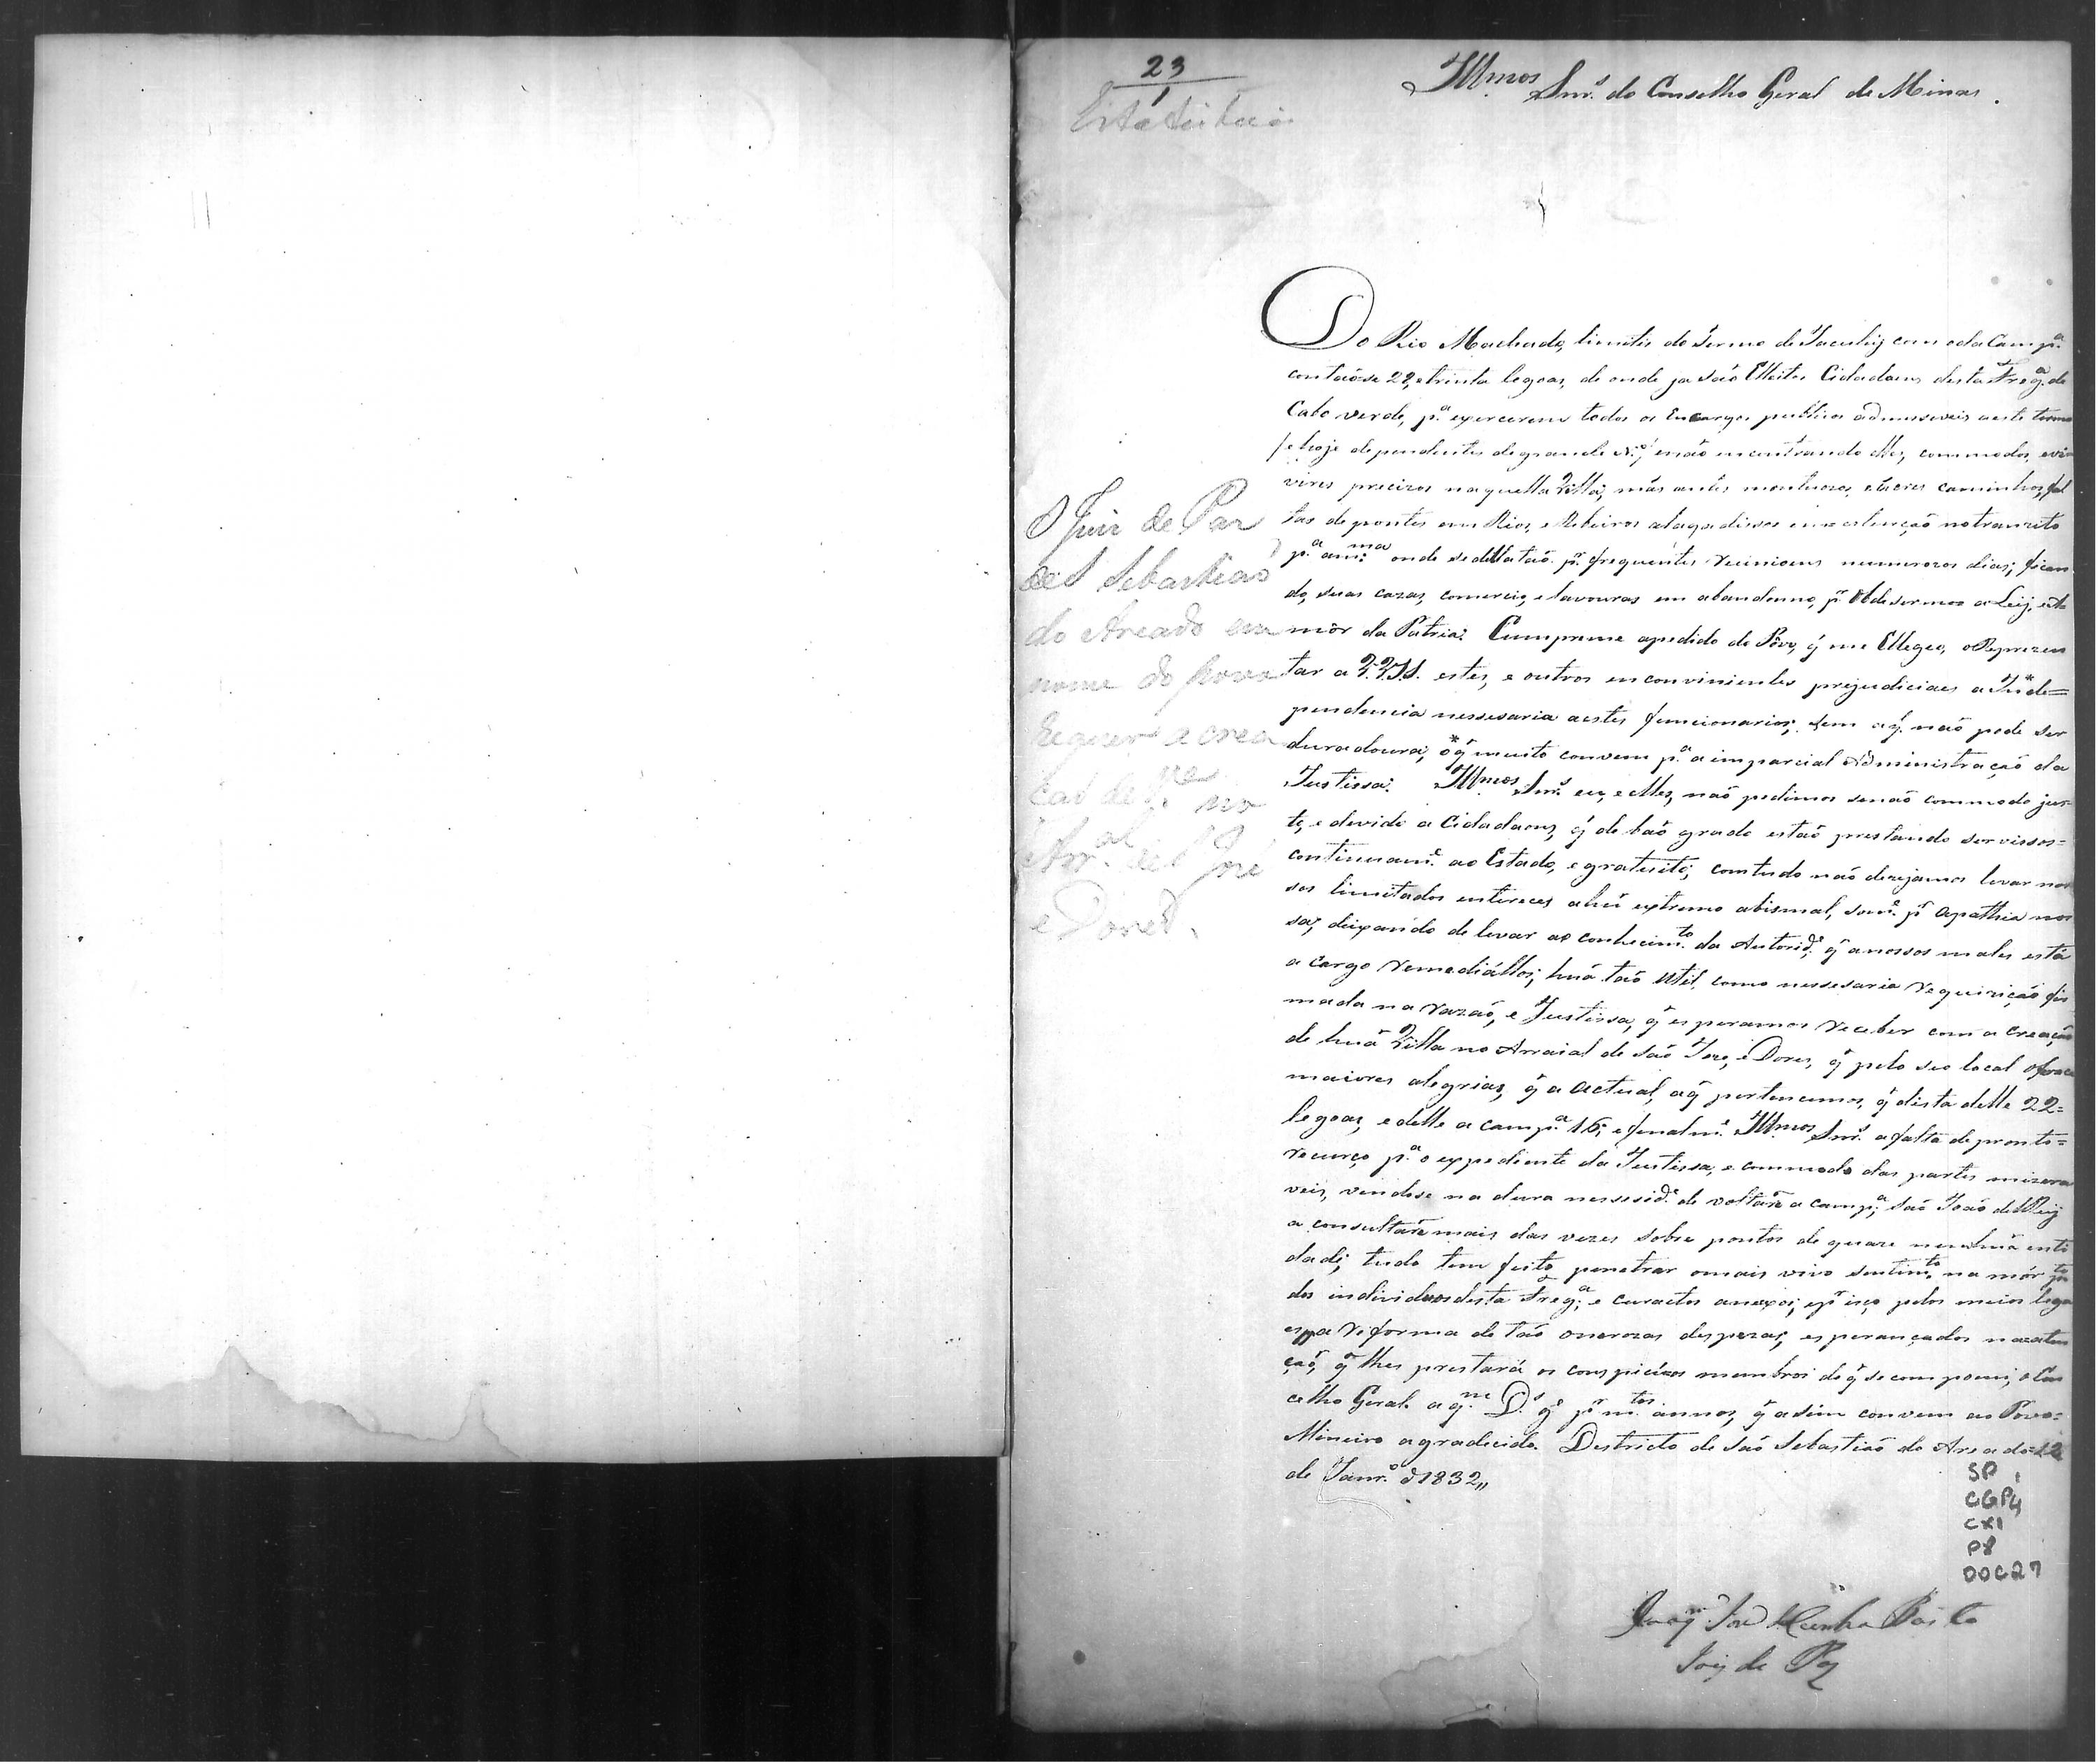 23
1
Estatistica
Illmos Snrs do Conselho Geral de Minas.
Do Rio Machado, limitis do Termo de Jacuhÿ com o da Campa
contaõ-se 28, e trinta legoas, de onde ja saõ Elleitos Cidadaens desta Frega de
Cabo verde, pa exercerem todos os Encargos publicos admissiveis aeste termo
e hoje dependentes degrande No, enaõ encontrando elles, commodos, evi
vires precizos naquella Villa, más antes montuozos, e ásores caminhos, fal
tas de pontes em Rios, e Ribeiros alagadissos em extenção no tranzito
pa amma onde se dillataõ pr frequentes reunioens numerozos dias; fican
do, suas cazas, comercio, e lavouras em abandonno, pr Obdesermos a Leÿ, e A
mòr da Patria. Cumpreme apedido do Povo, q̃ me Ellegeo, o Reprezen
tar a V.V.S.S. estes, e outros enconvinientes prejudiciaes a Inde=
pendencia nessesaria aestes funcionarios; sem aq̃ naõ pode ser
duradoura; óq̃ muito convem pa a imparcial Administração da
Justissa. Illmos Snrs eu, e elles, naõ pedimos senaõ commodo jus
to, e devido a Cidadaons, q̃ de baõ grado estaõ prestando servissos=
continuame ao Estado, e gratuito; comtudo naõ dezejamos levar nos
sos limitados enterêces ahũ extremo abismal, some pr apathia nos
sa, deixando de levar ao conhecimto da Autoride q̃ anossos males está
a cargo remediállos; huá taõ util, como nessesaria requizição fir
mada na razaõ, e Justissa, q̃ esperamos receber com a creação
de huá Villa no Arraial de Saõ Joze, e Dores, q̃ pelo seo local oferece
maiores alegrias, q̃ a actual, aq̃ pertencemos, q̃ dista delle 22=
legoas, e delle a campa 16; e finalme Illmos Snrs a falta de pronto=
recurço pa o expediente da Justissa, e commodo das partes mizera
veis, vendose na dura nessside de voltarẽ a campa, Saõ Joaõ delReÿ
a consultarẽ mais das vezes sobre pontos de quaze nenhuã enti
dade; tudo tem feito penetrar omais vivo sentimto na mór pte
dos individuos desta Frega, e curactos anexos; epr isço pelos meios lega
es a reforma de taõ onerozas despezas, esperançados naaten
çaõ, q̃ lhes prestará os conspicuos membros de q̃ se compoem, o Con
celho Geral a qm Ds ge pr mtos annos, q̃ asim convem ao Povo=
Mineiro agradecido. Destricto de Saõ Sebastiaõ do Areado 12
de Janro d 1832,,
Joaqm Joze
Juiz de Paz
O Juiz de Paz
de S Sebastiao
do Areado em
nome do povo
Requer a crea
cao de Va no
Arral de S José
e Dores.
SP
CGP4
CX1
P8
DOC27